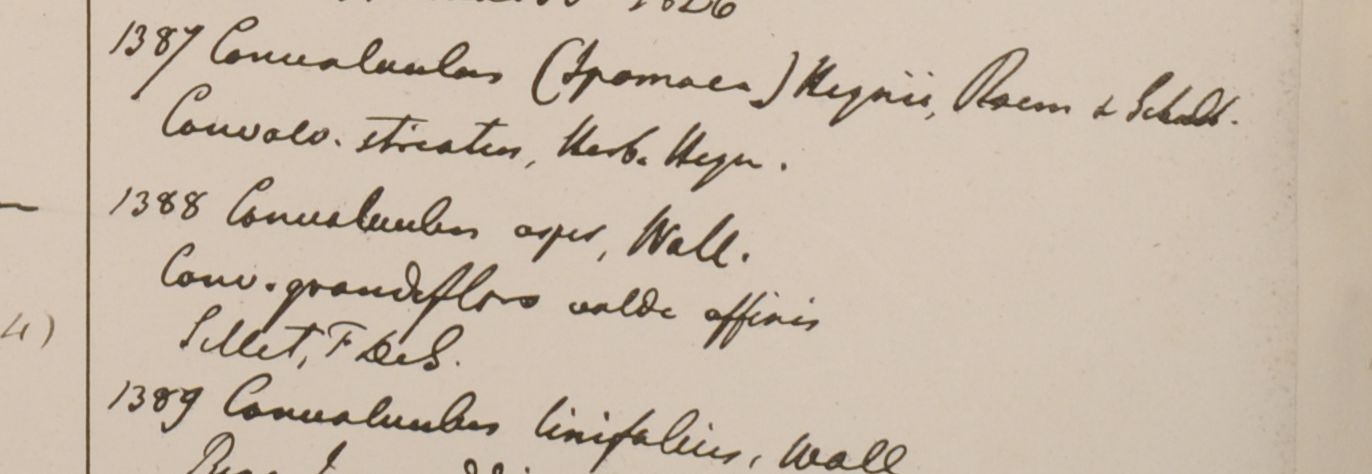 1826
1387 Convolvulus (Ipomaea) Heynii, Roem & Schult.
Convolv. striatus, Herb. Heyn.
1388 Convolvulus asper, Wall.
Conv. grandifloro valde affinis
Sillet, F De S.
1389 Convolvulus linifolius, Wall
4)